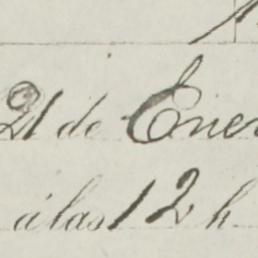 21 de Ener
á las 12 h